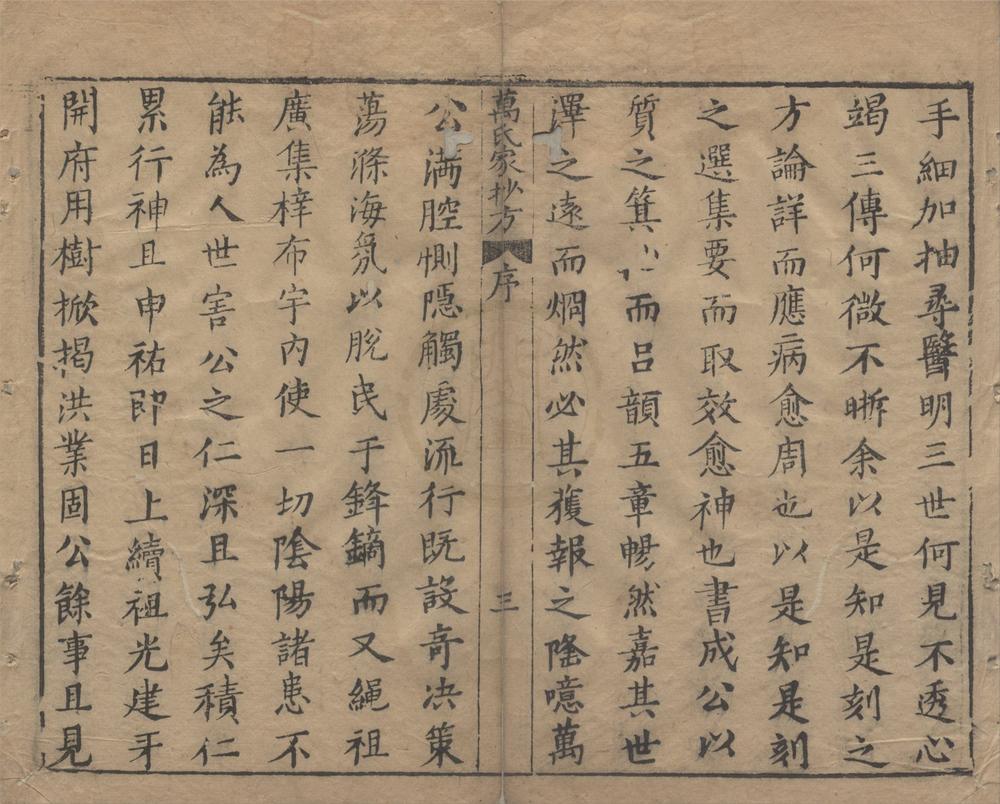 手細加抽尋醫明三世何見不透心
竭三傳何微不晰余以是知是刻之
方論詳而應病愈周也以是知是刻
之選集要而取效愈神也書成公以
質之箕而呂韻五章暢然嘉其世
澤之遠而烱然必其獲報之隆噫萬
萬氏家抄方 序 三
公滿腔惻隱觸處流行既設奇决策
蕩滌海氛以脫民于鋒鏑而又繩祖
廣集梓布宇內使一切陰陽諸患不
能為人世害公之仁深且弘矣積仁
累行神且申祐即日上續祖光建牙
開府用樹掀揭洪業固公餘事且見